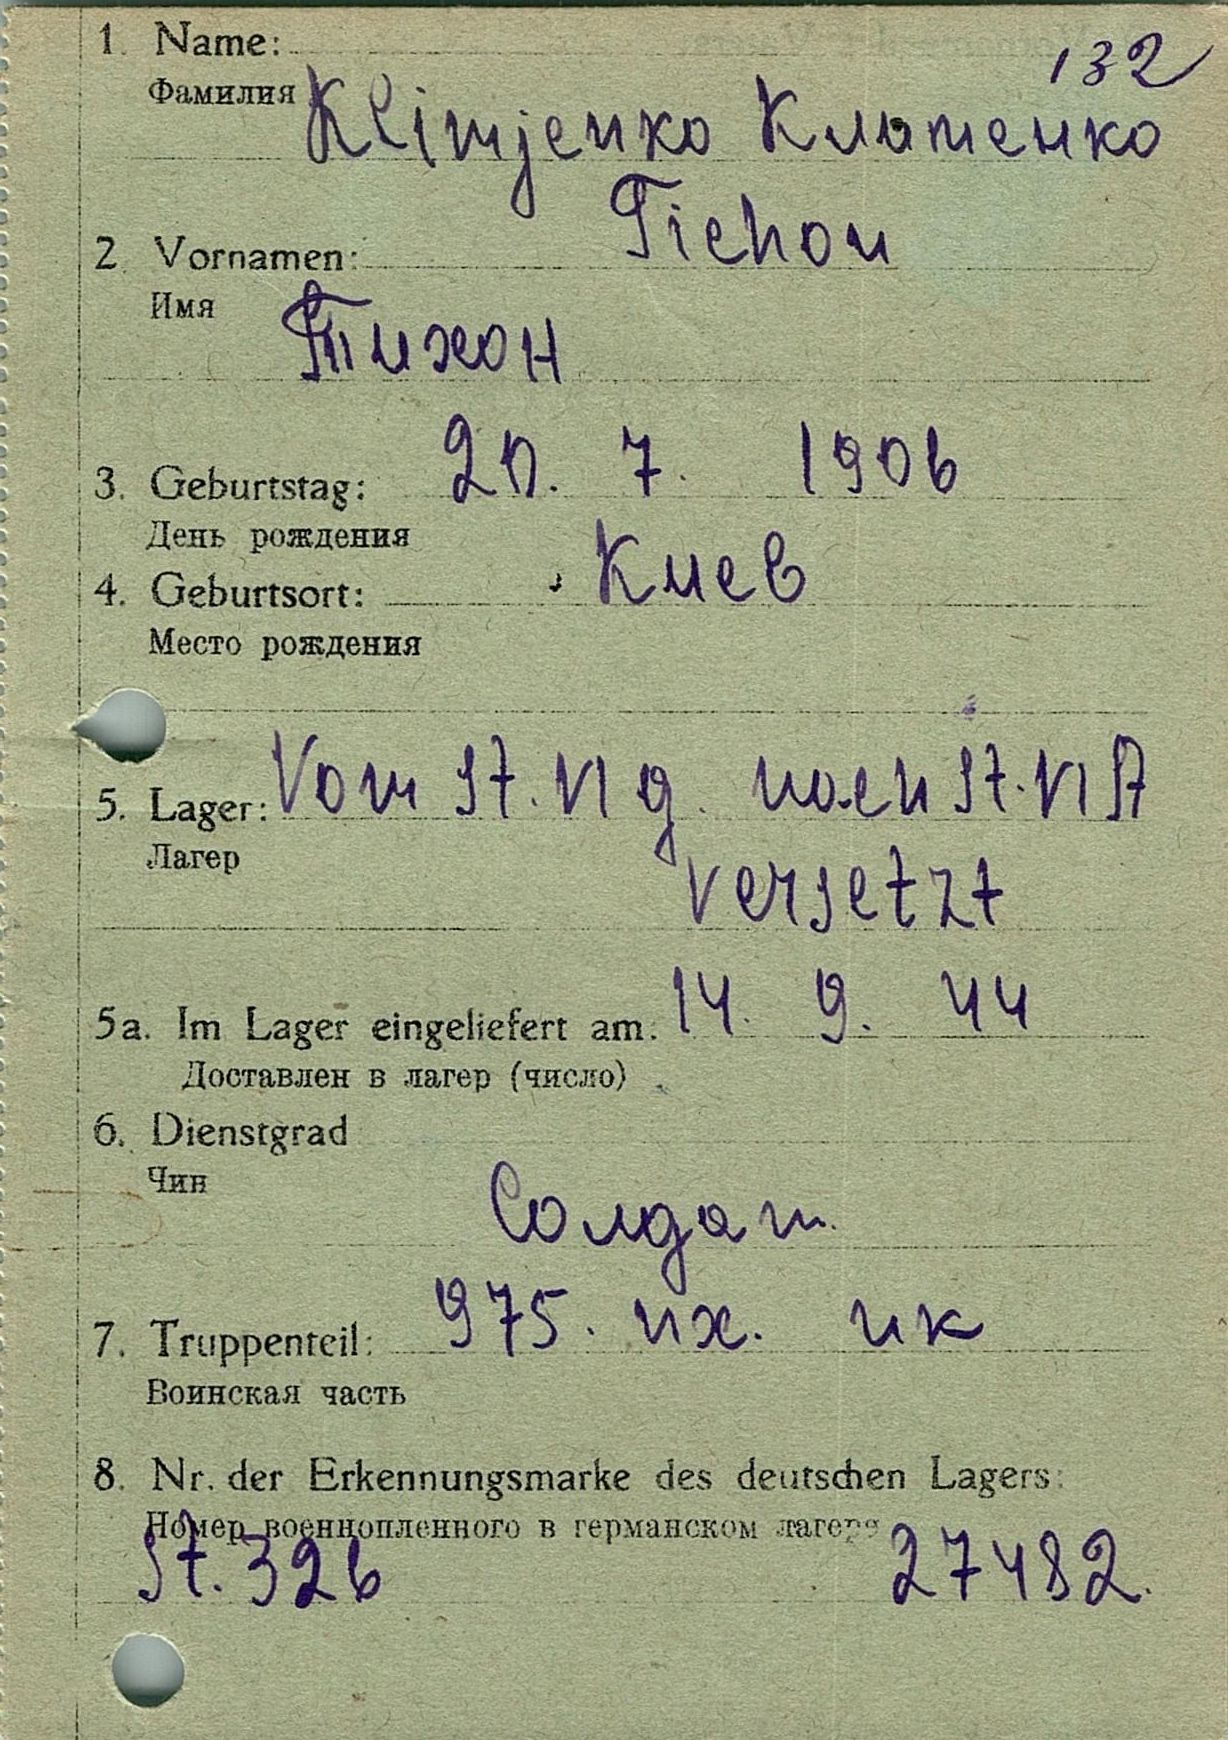 132
1. Name:
Фамилия Klimjenko Клименко
Tichon
2. Vornamen:
Имя
Тихон
3. Geburtstag: 20. 7. 1906
День рождения
4. Geburtsort: Киев
Место рождения
5. Lager: Vom St. VI g. nach St. VI A
Лагер
versetzt
5a. Im Lager eingeliefert am: 14. 9. 44
Доставлен в лагер (число)
6. Dienstgrad
Чин
Солдат.
7. Truppenteil: 975. их. ик
Воинская часть
8. Nr. der Erkennungsmarke des deutschen Lagers:
Номер военнопленного в германском лагере
St. 326 27482.